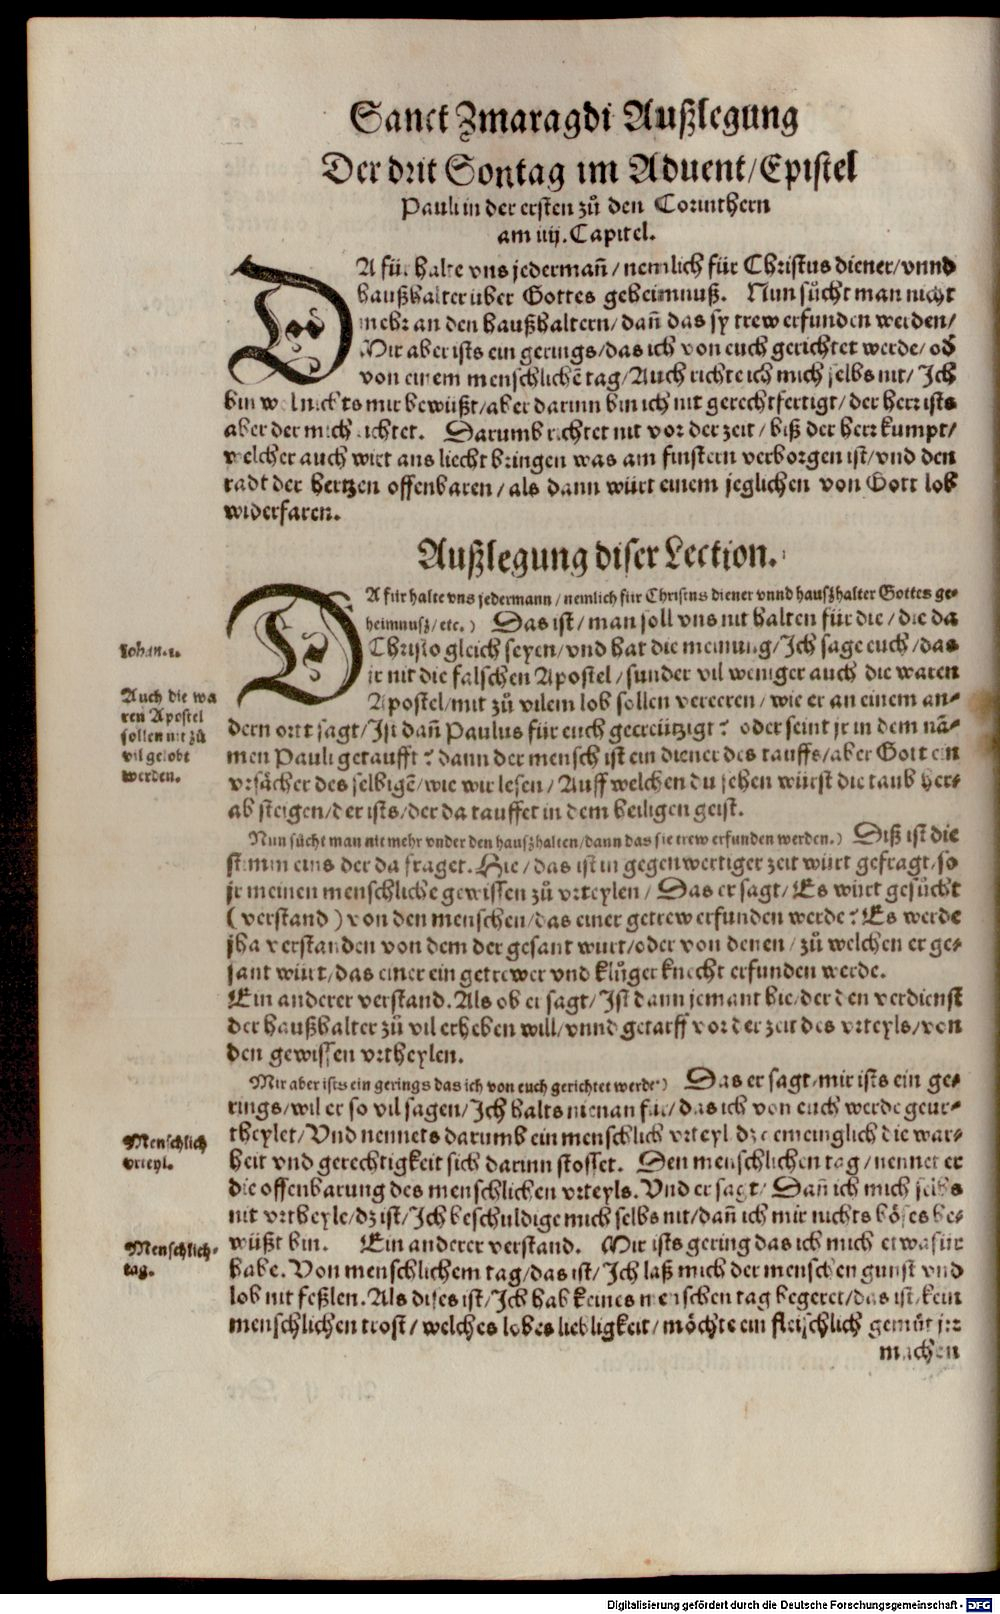 Sanct Zmaragdi Außlegung
Der drit Sontag im Aduent/Epistel
Pauli in der ersten zů den Corinthern
am iiij. Capitel.
DA für halte vns jedermañ/nemlich für Christus diener/vnnd
haußhalter über Gottes geheimnuß. Nun sůcht man nicht
mehr an den haußhaltern/dañ das sy trew erfunden werden/
Mir aber ists ein gerings/das ich von euch gerichtet werde/oď
von einem menschlichẽ tag/Auch richte ich mich selbs nit/Ich
bin wol nichts mir bewüßt/aber darinn bin ich nit gerechtfertigt/der herr ists
aber der mich richtet. Darumb richtet nit vor der zeit/biß der herr kumpt/
welcher auch wirt ans liecht bringen was am finstern verborgen ist/vnd den
radt der hertzen offenbaren/als dann würt einem jeglichen von Gott lob
widerfaren.
Außlegung diser Lection.
DA für halte vns jedermann/nemlich für Christus diener vnnd haußhalter Gottes ge-
heimnusz/etc.) Das ist/man soll vns nit halten für die/die da
Christo gleich seyen/vnd hat die meinung/Ich sage euch/das
Johan. 1.
ir nit die falschen Apostel/sunder vil weniger auch die waren
Auch die wa
ren Apostel
sollen nit zů
vil gelobt
werden.
Apostel/mit zů vilem lob sollen vereeren/wie er an einem an-
dern ortt sagt/Ist dañ Paulus für euch gecreützigt? oder seint jr in dem nã-
men Pauli getaufft? dann der mensch ist ein diener des tauffs/aber Gott ein
vrsächer des selbigẽ/wie wir lesen/Auff welchen du sehen würst die taub her-
ab steigen/der ists/der da tauffet in dem heiligen geist.
Nun sůcht man nit mehr vnder den hauszhalten/dann das sie trew erfunden werden.) Diß ist die
stimm eins der da fraget. Hie/das ist in gegenwertiger zeit würt gefragt/so
jr meinen menschliche gewissen zů vrteylen/Das er sagt/Es würt gesůcht
(verstand) von den menschen/das einer getrew erfunden werde? Es werde
jha verstanden von dem der gesant wurt/oder von denen/zů welchen er ge-
sant würt/das einer ein getrewer vnd klůger knecht erfunden werde.
Ein anderer verstand. Als ob er sagt/Ist dann jemant hie/der den verdienst
der haußhalter zů vil erheben will/vnnd getarff vor der zeit des vrteyls/von
den gewissen vrtheylen.
Mir aber ists ein gerings das ich von euch gerichtet werde) Das er sagt/mir ists ein ge-
rings/wil er so vil sagen/Ich halts nienan für/das ich von euch werde geur-
Menschlich
vrteyl.
theylet/Vnd nennets darumb ein menschlich vrteyl dz gemeinglich die war-
heit vnd gerechtigkeit sich darinn stosset. Den menschlichen tag/nennet er
die offenbarung des menschlichen vrteyls. Vnd er sagt/Dañ ich mich selbs
nit vrtheyle/dz ist/Ich beschuldige mich selbs nit/dañ ich mir nichts böses be-
Menschlich-
tag.
wüßt bin. Ein anderer verstand. Mir ists gering das ich mich etwafür
habe. Von menschlichem tag/das ist/Ich laß mich der menschen gunst vnd
lob nit feßlen. Als dises ist/Ich hab keines menschen tag begeret/das ist/kein
menschlichen trost/welches lobes liebligkeit/möchte ein fleischlich gemůt jrr
machen
Digitalisierung gefördert durch die Deutsche Forschungsgemeinschaft - DFG